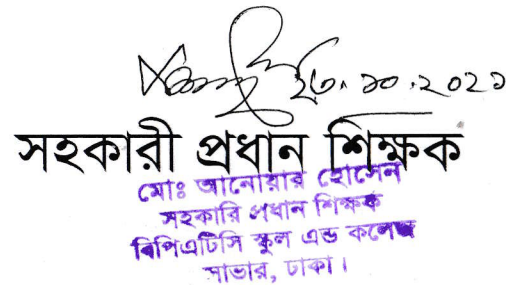 ২৩.১০.২০২১
সহকারী প্রধান শিক্ষক
মোঃ আনোয়ার হোসেন
সহকারি প্রধান শিক্ষক
বিপিএটিসি স্কুল এন্ড কলেজ
সাভার, ঢাকা।